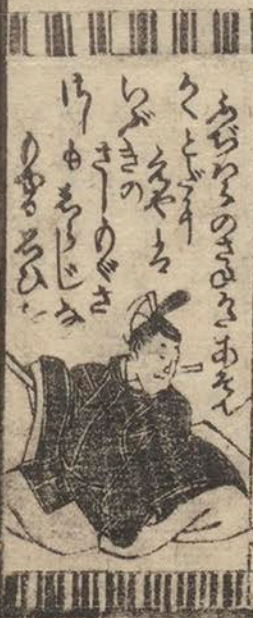 ふぢはらのさねかたあそん
かくとだに
えやは
いぶきの
さしもぐさ
さしもしらじな
もゆる思ひを